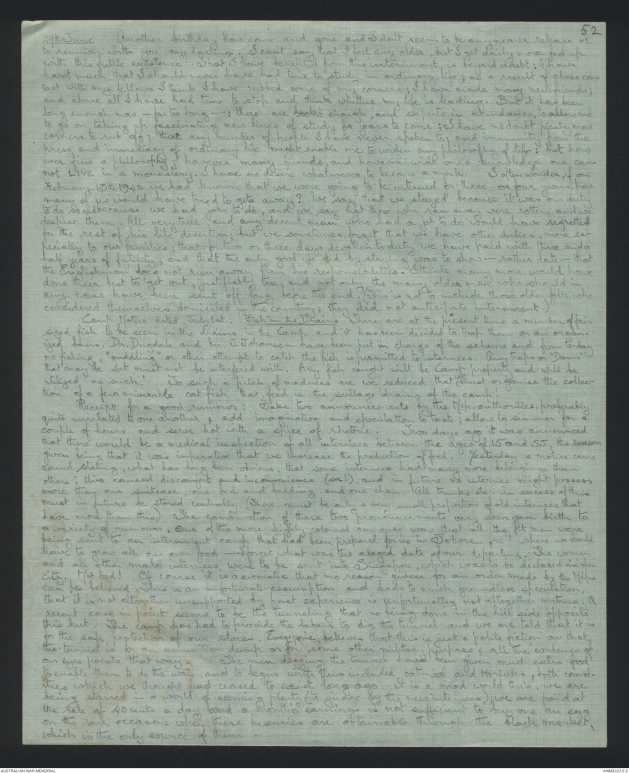 52
29th June. Another birthday has come and gone and I don't seem to be any nearer release or
to reunion with you my darling. I can't say that I feel any older, but I get daily more fed up
with this futile existence. That I have benefited from this internment is beyond doubt; I have
learnt much that I should never have had time to study in ordinary life; as a result of close con-
tact with my fellows I think I have rubbed some of my corners; I have made many new friends;
and above all I have had time to stop and think whither my life is leading. But it has been
long enough now — far too long —; there are books enough, and experts in abundance, to allow me
to go on taking up fascinating new lines of study for years to come; I have no doubt plenty more
corners to rub off; the number of people I have never spoken to; and immunity from the
press and immediacy of ordinary life might enable me to widen my philosophy of life; but how-
ever fine a philosophy, however many friends, and however wide one's knowledge one can
not LIVE in a monastery. I have no desire whatsoever to become a monk. I often wonder, if on
February 15th, 1942 we had known that we were going to be interned for three, or four years, how
many of us would have tried to get away? We say that we stayed because it was our duty
to do so and because we had jobs to do, and we say that those who ran away were rotters, and we
despise them. It's very true, and any decent man who had a job to do would have regretted
for the rest of his life desertion; but we sometimes forget that we have other duties, more es-
pecially to our families; that for two or three days devotion to duty we have paid with three and a
half years of futility; and that the only good we did by staying was to show — rather late — that
the Englishman does not run away from his responsibilities. I think many more would have
done their best to get out, justifiably too; and not only the many older men who should in
any case have been sent off long before the end. (This is not to include those older folk who
considered themselves domiciled in the country; they did not anticipate internment.)
Camp Notice dated July 1st: "Fish in the Drains. There are at the present time a number of fair
sized fish to be seen in the drains in the Camp and it has been decided to trap them on an organ-
ised basis. Dr. Dugdale and Mr. J. Johansen have been put in charge of the scheme and from today
no fishing, "guddling" or other attempt to catch the fish is permitted to internees. Any traps or "Dams"
that may be set must not be interfered with. Any fish caught will be Camp property and will be
utilised as such." To such a pitch of madness are we reduced that must organise the collec-
tion of a few miserable cat fish that feed in the sullage drains of the camp!
Receipt for a good rumour: Take two announcements by the Nip. authorities, preferably
quite unrelated to one another; add imagination and speculation to taste; allow to simmer for a
couple of hours and serve hot with a spice of rhetoric. Two days ago it was announced
that there would be a medical inspection of all internees between the ages of 15 and 55, the reason
given being that it was imperative that we increase the production of food. Yesterday a notice came
round stating, what has long been obvious, that some internees had many more belongings than
others; this caused discomfort and inconvenience (sic!), and in future no internee might possess
more than one suitcase, one bed and bedding, and one chair. All trunks etc. in excess of this
must in future be stored centrally. (There must be only a very small proportion of old internees that
have more than this) The combination of these two "pronouncements" has very soon given birth to
a variety of rumours. One of the more highly coloured examples was that all the fit men were
being sent to an internment camp that had been prepared for us in Johore, where we would
have to grow all our own food — I forget what was the alleged date of our departure. The women
and all other male internees were to be sent into Singapore, which was to be declared an open
city. Not bad! Of course it is axiomatic that no reason given for an order made by the Nips
can be believed. This is an unfortunate assumption and leads to much groundless speculation;
that it is not altogether unsupported by past experience is unfortunately not altogether untrue. A
recent case in point seems to be the tunnelling that is being done in the hill side opposite
this hut. The camp has had to provide the labour to dig the tunnel and we are told that it is
for the safe protection of our stores. Everyone, believing that this is just a polite fiction and that
the tunnel is for an ammunition dump or for some other military purpose; all the evidence of
our eyes points that way. The men digging the tunnel have been given much extra food
to enable them to do the work, and to begin with this included oatmeal and Horlicks, both comod-
ities which we thought had ceased to exist long ago. It is a mad world this; we are
being starved in a world of seeming plenty, (to go also by the certain news); we are paid at
the rate of 40 cents a day, and a month's earnings is not sufficient to buy one an egg
on the rare occasions when these luxuries are obtainable through the black market,
which is the only source of them.
AUSTRALIAN WAR MEMORIAL